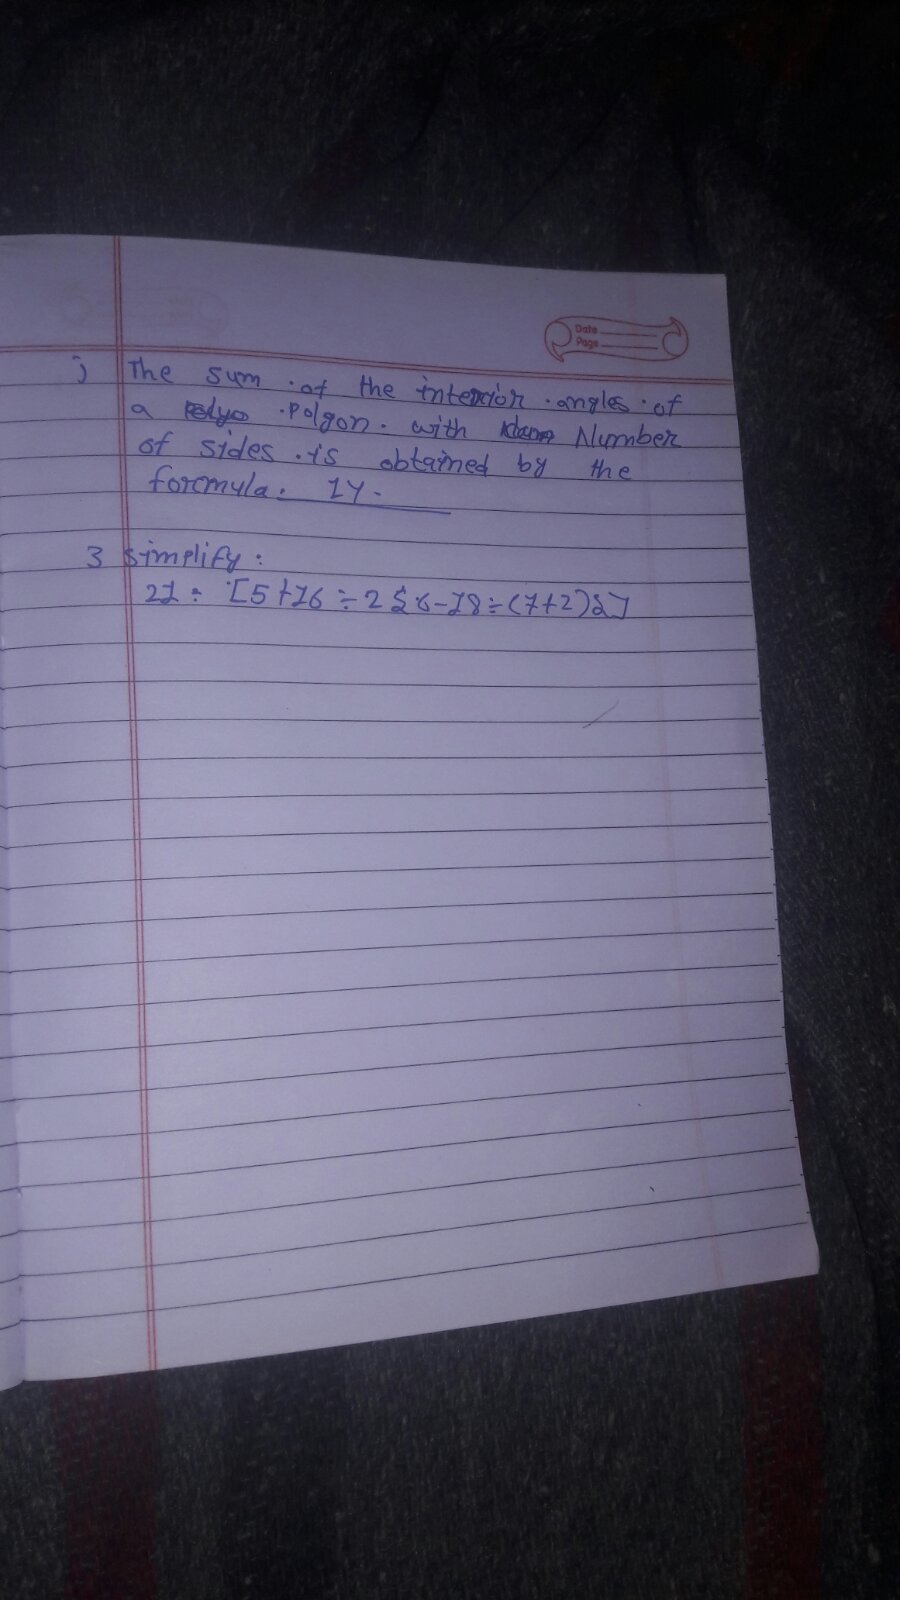 Date
Page
j The sum of the interior angles of
a Polgon. with Number
of sides is obtained by the
formula. 14.
3 simplify:
21 ÷ [5+16 ÷ 2 {6-18÷(7+2)}]